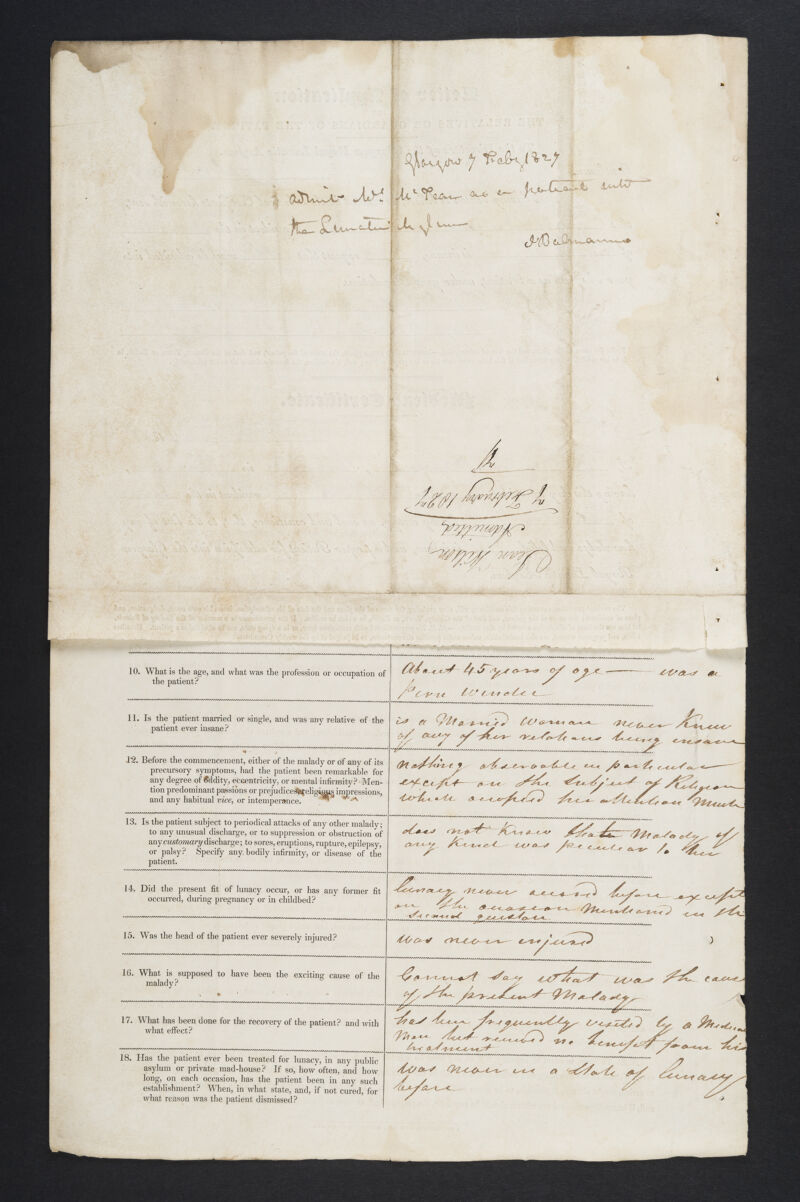 Glasgow 7 Feby 1827
Admit Mrs. Mc as a patient into
the Lunatic Asylum
J Balmanno
Jean Wilson
Admitted
7 February 1827
10. What is the age, and what was the profession or occupation of
the patient?
About 45 years of age — was a
pirn winder
11. Is the patient married or single, and was any relative of the
patient ever insane?
is a Married woman never Knew
of any of her relations being insane
12. Before the commencement, either of the malady or of any of its
precursory symptoms, had the patient been remarkable for
any degree of oddity, eccentricity, or mental infirmity? Men-
tion predominant passions or prejudices, religious impressions,
and any habitual vice, or intemperance.
nothing observable in particular
except on the subject of Religion
which occupied her attention Much
13. Is the patient subject to periodical attacks of any other malady;
to any unusual discharge, or to suppression or obstruction of
any customary discharge; to sores, eruptions, rupture, epilepsy,
or palsy? Specify any bodily infirmity, or disease of the
patient.
does not Know that Malady of
any Kind was peculiar to her
14. Did the present fit of lunacy occur, or has any former fit
occurred, during pregnancy or in childbed?
lunacy never occured before except
on the occasion Mentioned in the
second question
15. Was the head of the patient ever severely injured?
was never injured
16. What is supposed to have been the exciting cause of the
malady?
Cannot say what was the cause
of the present Malady
17. What has been done for the recovery of the patient? and with
what effect?
has been frequently visited by a Medical
Man but received no benefit from his
treatment
18. Has the patient ever been treated for lunacy, in any public
asylum or private mad-house? If so, how often, and how
long, on each occasion, has the patient been in any such
establishment? When, in what state, and, if not cured, for
what reason was the patient dismissed?
was never in a State of lunacy
before